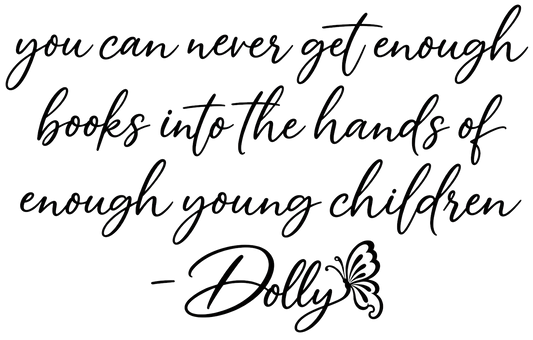 you can never get enough
books into the hands of
enough young children
- Dolly